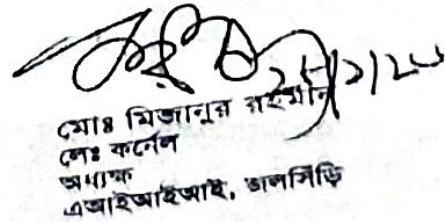 মোঃ মিজানুর রহমান
লেঃ কর্নেল
অধ্যক্ষ
এআইআইআই, জালসিঁড়ি